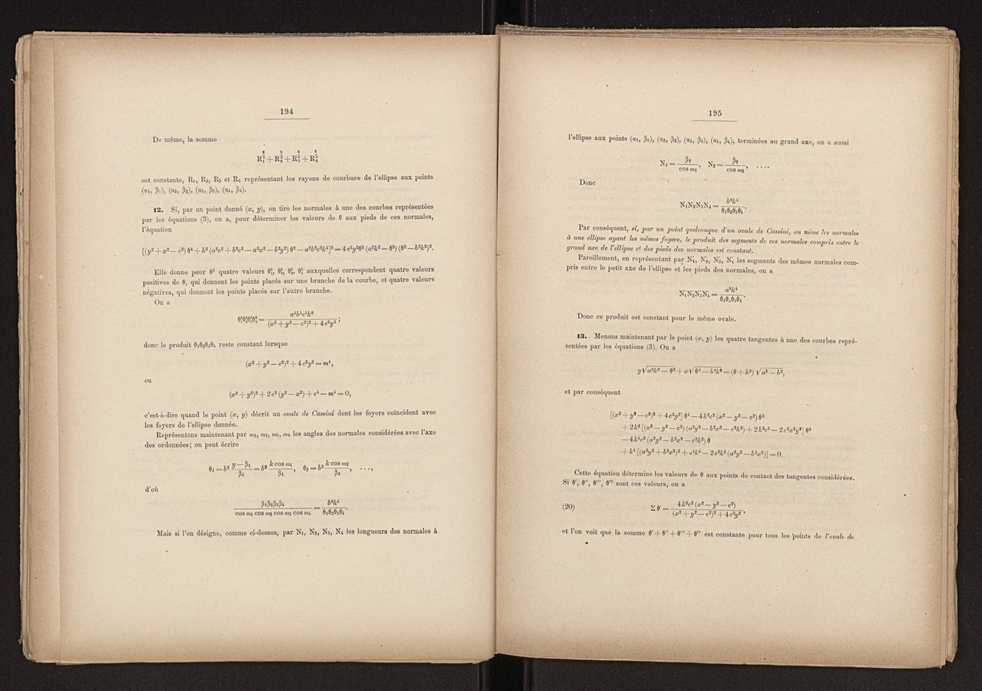 194
De même, la somme
est constante, R₁, R₂, R₃ et R₄ représentant les rayons de courbure de l'ellipse aux points
(α₁, β₁), (α₂, β₂), (α₃, β₃), (α₄, β₄).
12. Si, par un point donné (x, y), on tire les normales à une des courbes représentées
par les équations (3), on a, pour déterminer les valeurs de θ aux pieds de ces normales,
l'équation
Elle donne pour θ² quatre valeurs θ₁², θ₂², θ₃², θ₄² auxquelles correspondent quatre valeurs
positives de θ, qui donnent les points placés sur une branche de la courbe, et quatre valeurs
négatives, qui donnent les points placés sur l'autre branche.
On a
donc le produit θ₁θ₂θ₃θ₄ reste constant lorsque
(x² + y² − c²)² + 4 c²y² = m⁴,
ou
(x² + y²)² + 2 c² (y² − x²) + c⁴ − m⁴ = 0,
c'est-à-dire quand le point (x, y) décrit un ovale de Cassini dont les foyers coïncident avec
les foyers de l'ellipse donnée.
Représentons maintenant par ω₁, ω₂, ω₃, ω₄ les angles des normales considérées avec l'axe
des ordonnées; on peut écrire
θ₁ = b² (y − β₁)/β₁ = b² (k cos ω₁)/β₁, θ₂ = b² (k cos ω₂)/β₂, ...,
d'où
β₁β₂β₃β₄/(cos ω₁ cos ω₂ cos ω₃ cos ω₄) = b⁸k⁴/(θ₁θ₂θ₃θ₄).
Mais si l'on désigne, comme ci-dessus, par N₁, N₂, N₃, N₄ les longueurs des normales à
195
l'ellipse aux points (α₁, β₁), (α₂, β₂), (α₃, β₃), (α₄, β₄), terminées au grand axe, on a aussi
N₁ = β₁/cos ω₁, N₂ = β₂/cos ω₂, ....
Donc
N₁N₂N₃N₄ = b⁸k⁴/(θ₁θ₂θ₃θ₄).
Par conséquent, si, par un point quelconque d'un ovale de Cassini, on mène les normales
à une ellipse ayant les mêmes foyers, le produit des segments de ces normales compris entre le
grand axe de l'ellipse et des pieds des normales est constant.
Pareillement, en représentant par N₁, N₂, N₃, N₄ les segments des mêmes normales com-
pris entre le petit axe de l'ellipse et les pieds des normales, on a
N₁N₂N₃N₄ = a⁸k⁴/(θ₁θ₂θ₃θ₄).
Donc ce produit est constant pour le même ovale.
13. Menons maintenant par le point (x, y) les quatre tangentes à une des courbes repré-
sentées par les équations (3). On a
et par conséquent
Cette équation détermine les valeurs de θ aux points de contact des tangentes considérées.
Si θ', θ'', θ''', θ'''' sont ces valeurs, on a
(20) Σ θ' = 4 k²c² (x² − y² − c²)/((x² + y² − c²)² + 4 c²y²),
et l'on voit que la somme θ' + θ'' + θ''' + θ'''' est constante pour tous les points de l'ovale de